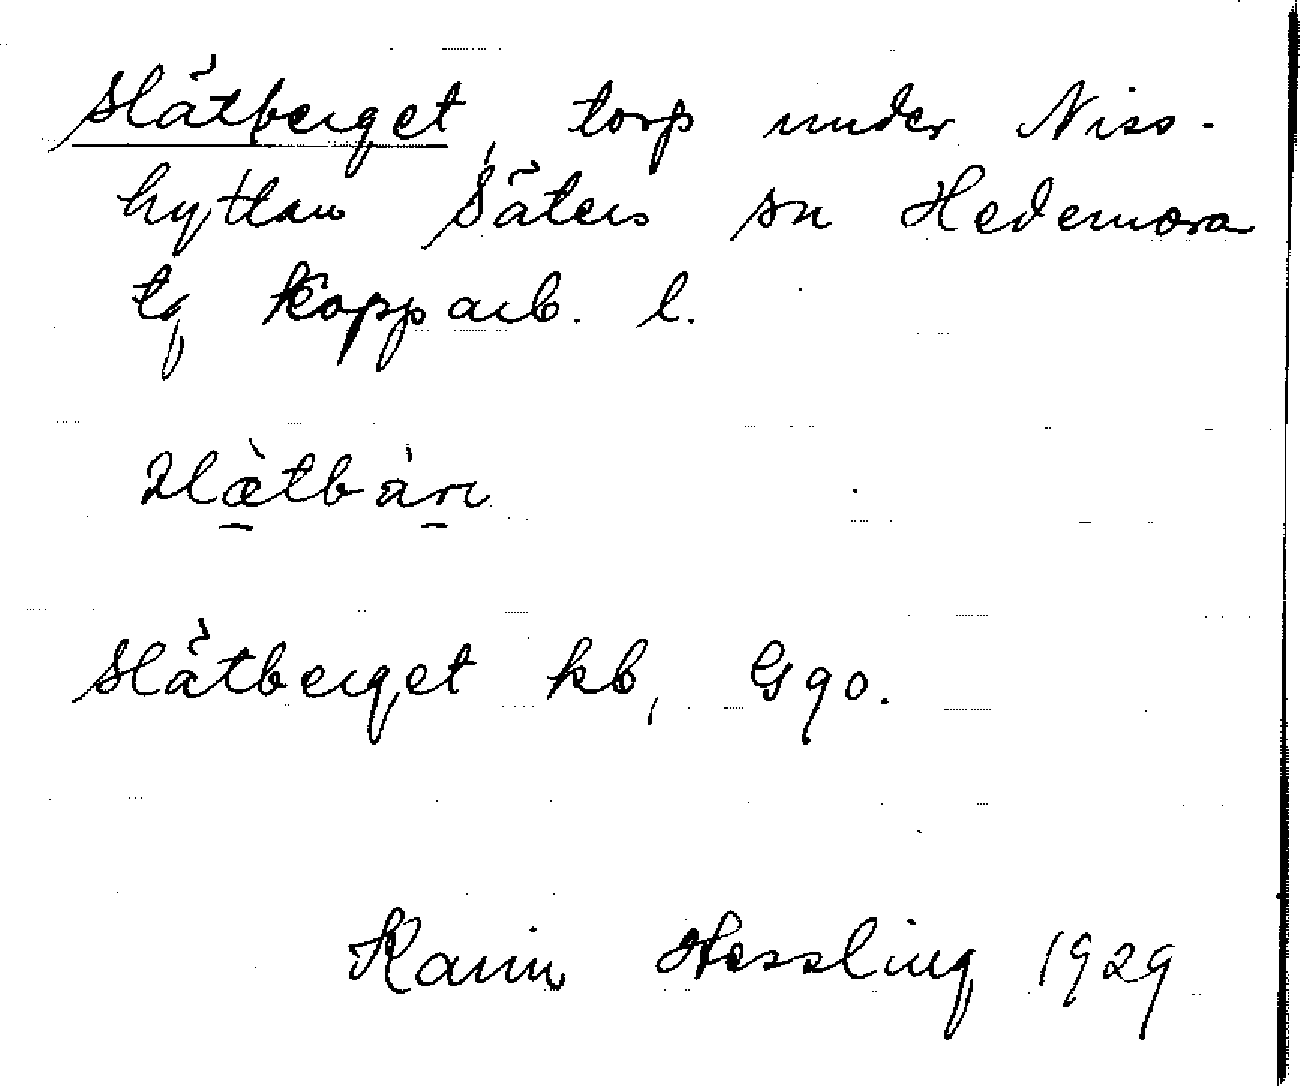 Slätberget, torp under Niss-
hyttan Säters sn Hedemora
tg Kopparb. l.
Slætbàrı
Slätberget kb, G 90.
Karin Hessling 1929